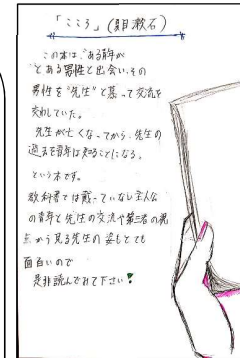 「こころ」(夏目漱石)
この本は、ある青年が
とある男性と出会い、その
男性を"先生"と慕って交流を
交わしていた。
先生が亡くなってから、先生の
過去を青年は知ることになる。
という本です。
教科書では載っていない主人公
の青年と先生の交流や第三者の視
点から見る先生の姿もとても
面白いので
是非読んでみて下さい!